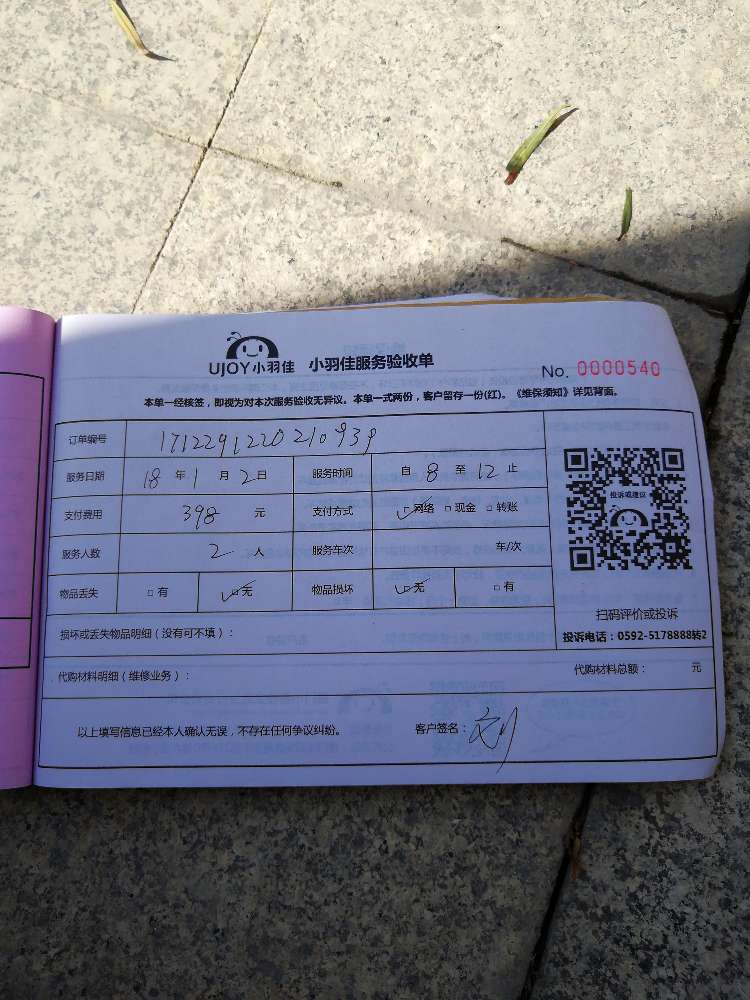 UJOY小羽佳 小羽佳服务验收单 No. 0000540
本单一经核签，即视为对本次服务验收无异议。本单一式两份，客户留存一份(红)。《维保须知》详见背面。
订单编号 1712291220210939
服务日期 18 年 1 月 2 日 服务时间 自 8 至 12 止
投诉或建议
支付费用 398 元 支付方式 ☑网络 □现金 □转账
服务人数 2 人 服务车次 车/次
物品丢失 □有 ☑无 物品损坏 ☑无 □有
扫码评价或投诉
损坏或丢失物品明细（没有可不填）：
投诉电话：0592-5178888转2
代购材料明细（维修业务）： 代购材料总额： 元
以上填写信息已经本人确认无误，不存在任何争议纠纷。 客户签名：刘